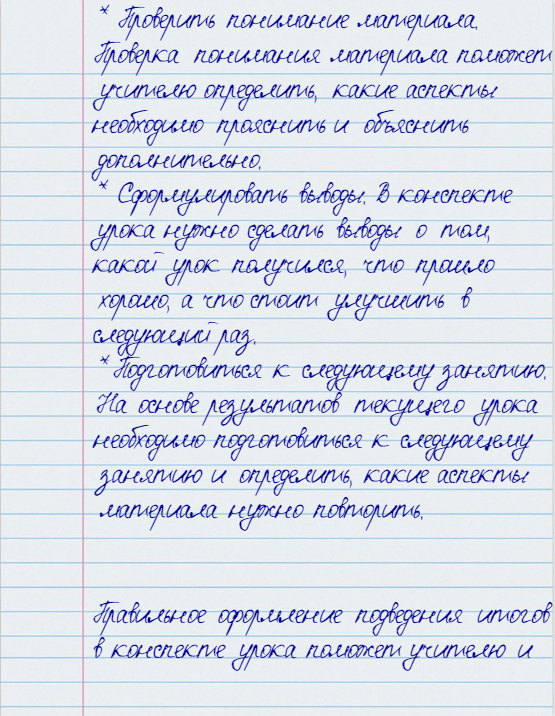 * Проверить понимание материала.
Проверка понимания материала поможет
учителю определить, какие аспекты
необходимо прояснить и объяснить
дополнительно.
* Сформулировать выводы. В конспекте
урока нужно сделать выводы о том,
какой урок получился, что прошло
хорошо, а что стоит улучшить в
следующий раз.
* Подготовиться к следующему занятию.
На основе результатов текущего урока
необходимо подготовиться к следующему
занятию и определить, какие аспекты
материала нужно повторить.
Правильное оформление подведения итогов
в конспекте урока поможет учителю и